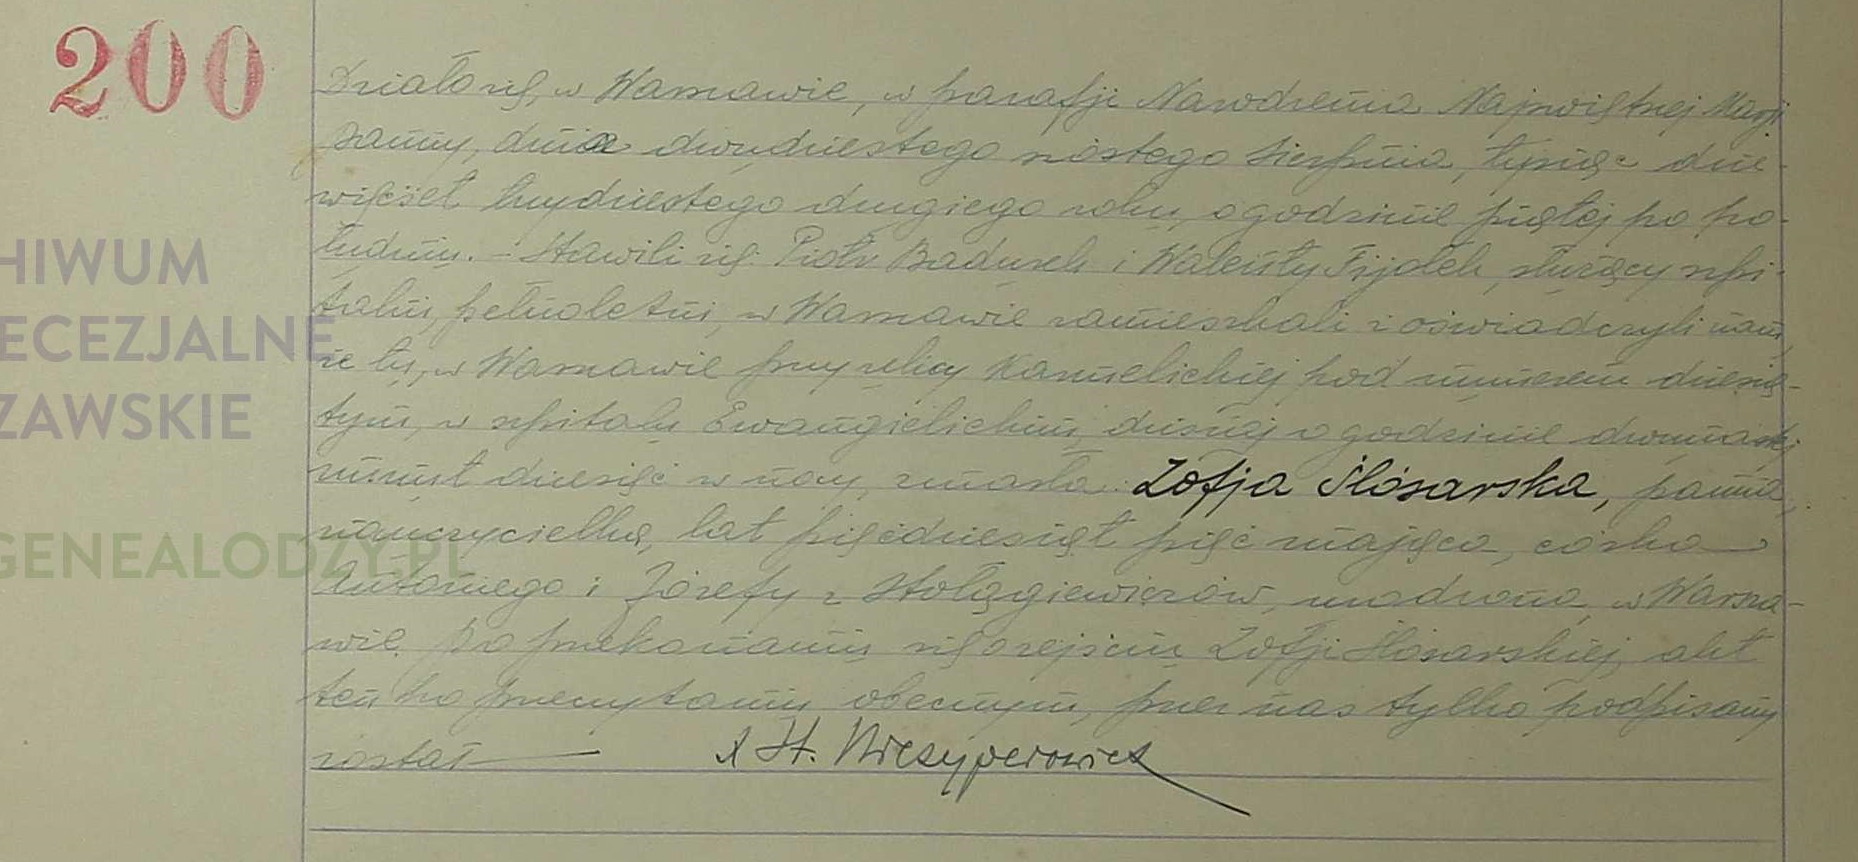 200
Działo się, w Warszawie, w parafji Narodzenia Najświętszej Marji
Panny, dnia dwudziestego szóstego sierpnia, tysiąc dzie-
więćset trzydziestego drugiego roku, o godzinie piątej po po-
łudniu. - Stawili się: Piotr Baduszek i Walenty Fijołek, służący szpi-
talni, pełnoletni, w Warszawie zamieszkali i oświadczyli nam,
że tu, w Warszawie przy ulicy Karmelickiej pod numerem dziesią-
tym, w szpitalu Ewangielickim, dzisiaj o godzinie dwunastej
minut dziesięć w nocy, zmarła: Zofja Ślósarska, panna,
nauczycielka, lat pięćdziesiąt pięć mająca, córka
Antoniego i Józefy z urodzona w Warsza-
wie. Po przekonaniu się o zejściu Zofji Ślósarskiej, akt
ten po przeczytaniu obecnym, przez nas tylko podpisany
został
X St.
HIWUM
ECEZJALNE
ZAWSKIE
GENEALODZY.PL